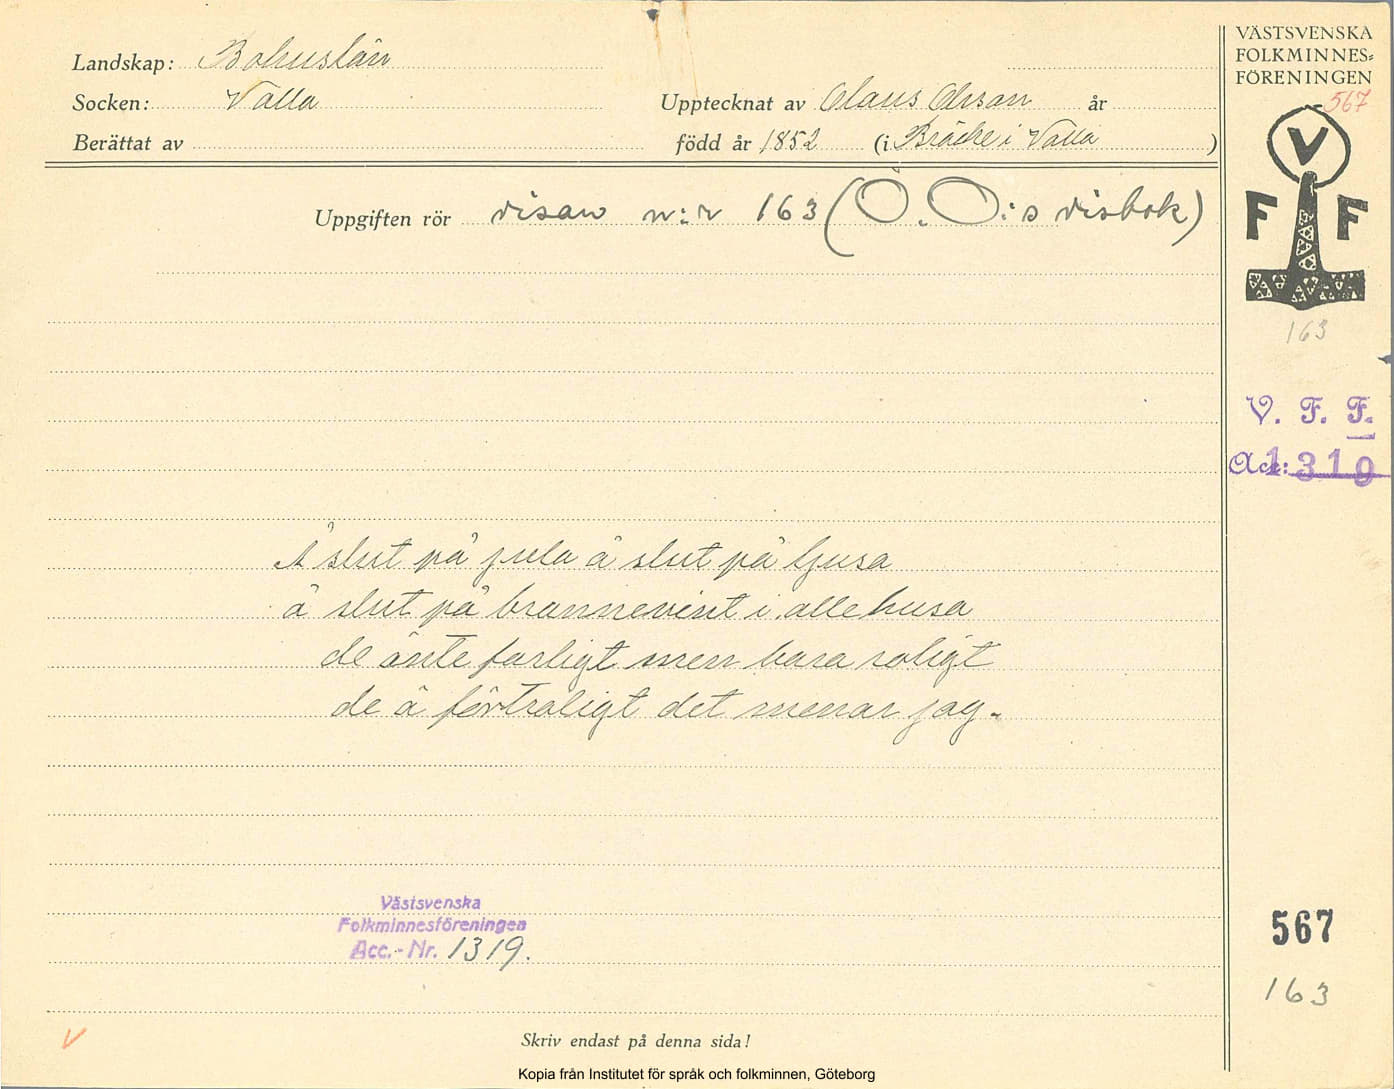 Landskap: Bohuslän
Socken: Valla
Upptecknat av Claus Olsson år
Berättat av
född år 1852 (i Bräcke i Valla)
Uppgiften rör visan n:r 163 (O. O:s visbok)
Å slut på jula å slut på ljusa
å slut på brannevint i alle husa
de änte farligt men bara roligt
de å förtroligt det menar jag.
Västsvenska
Folkminnesföreningen
Acc.-Nr. 1319.
V
Skriv endast på denna sida!
VÄSTSVENSKA
FOLKMINNES-
FÖRENINGEN
567
V
F F
163
V. F. F.
Acc: 1319
567
163
Kopia från Institutet för språk och folkminnen, Göteborg